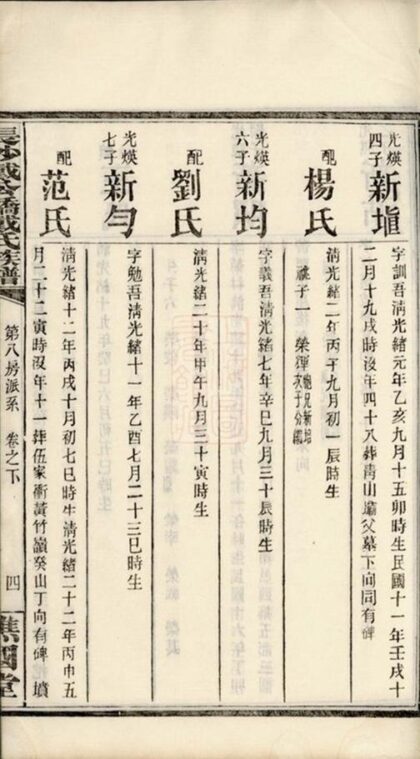 光煐四子 新
字訓吾清光緒元年乙亥九月十五卯時生民國十一年壬戌十
二月十九戌時沒年四十八葬靑山壩父墓下向同有碑
配 楊氏
清光緒二年丙子九月初一辰時生
祧子一 榮 胞兄新培次子分繼
光煐六子 新均
字義吾清光緒七年辛巳九月三十辰時生
配 劉氏
清光緒二十年甲午九月三十寅時生
光煐七子 新勻
字勉吾清光緒十一年乙酉七月二十三巳時生
配 范氏
清光緒十二年丙戌十月初七巳時生清光緒二十二年丙申五
月二十二寅時沒年十一葬伍家衝黃竹嶺癸山丁向有碑墳
氏族譜
第八房派系 卷之下
四
譙國堂